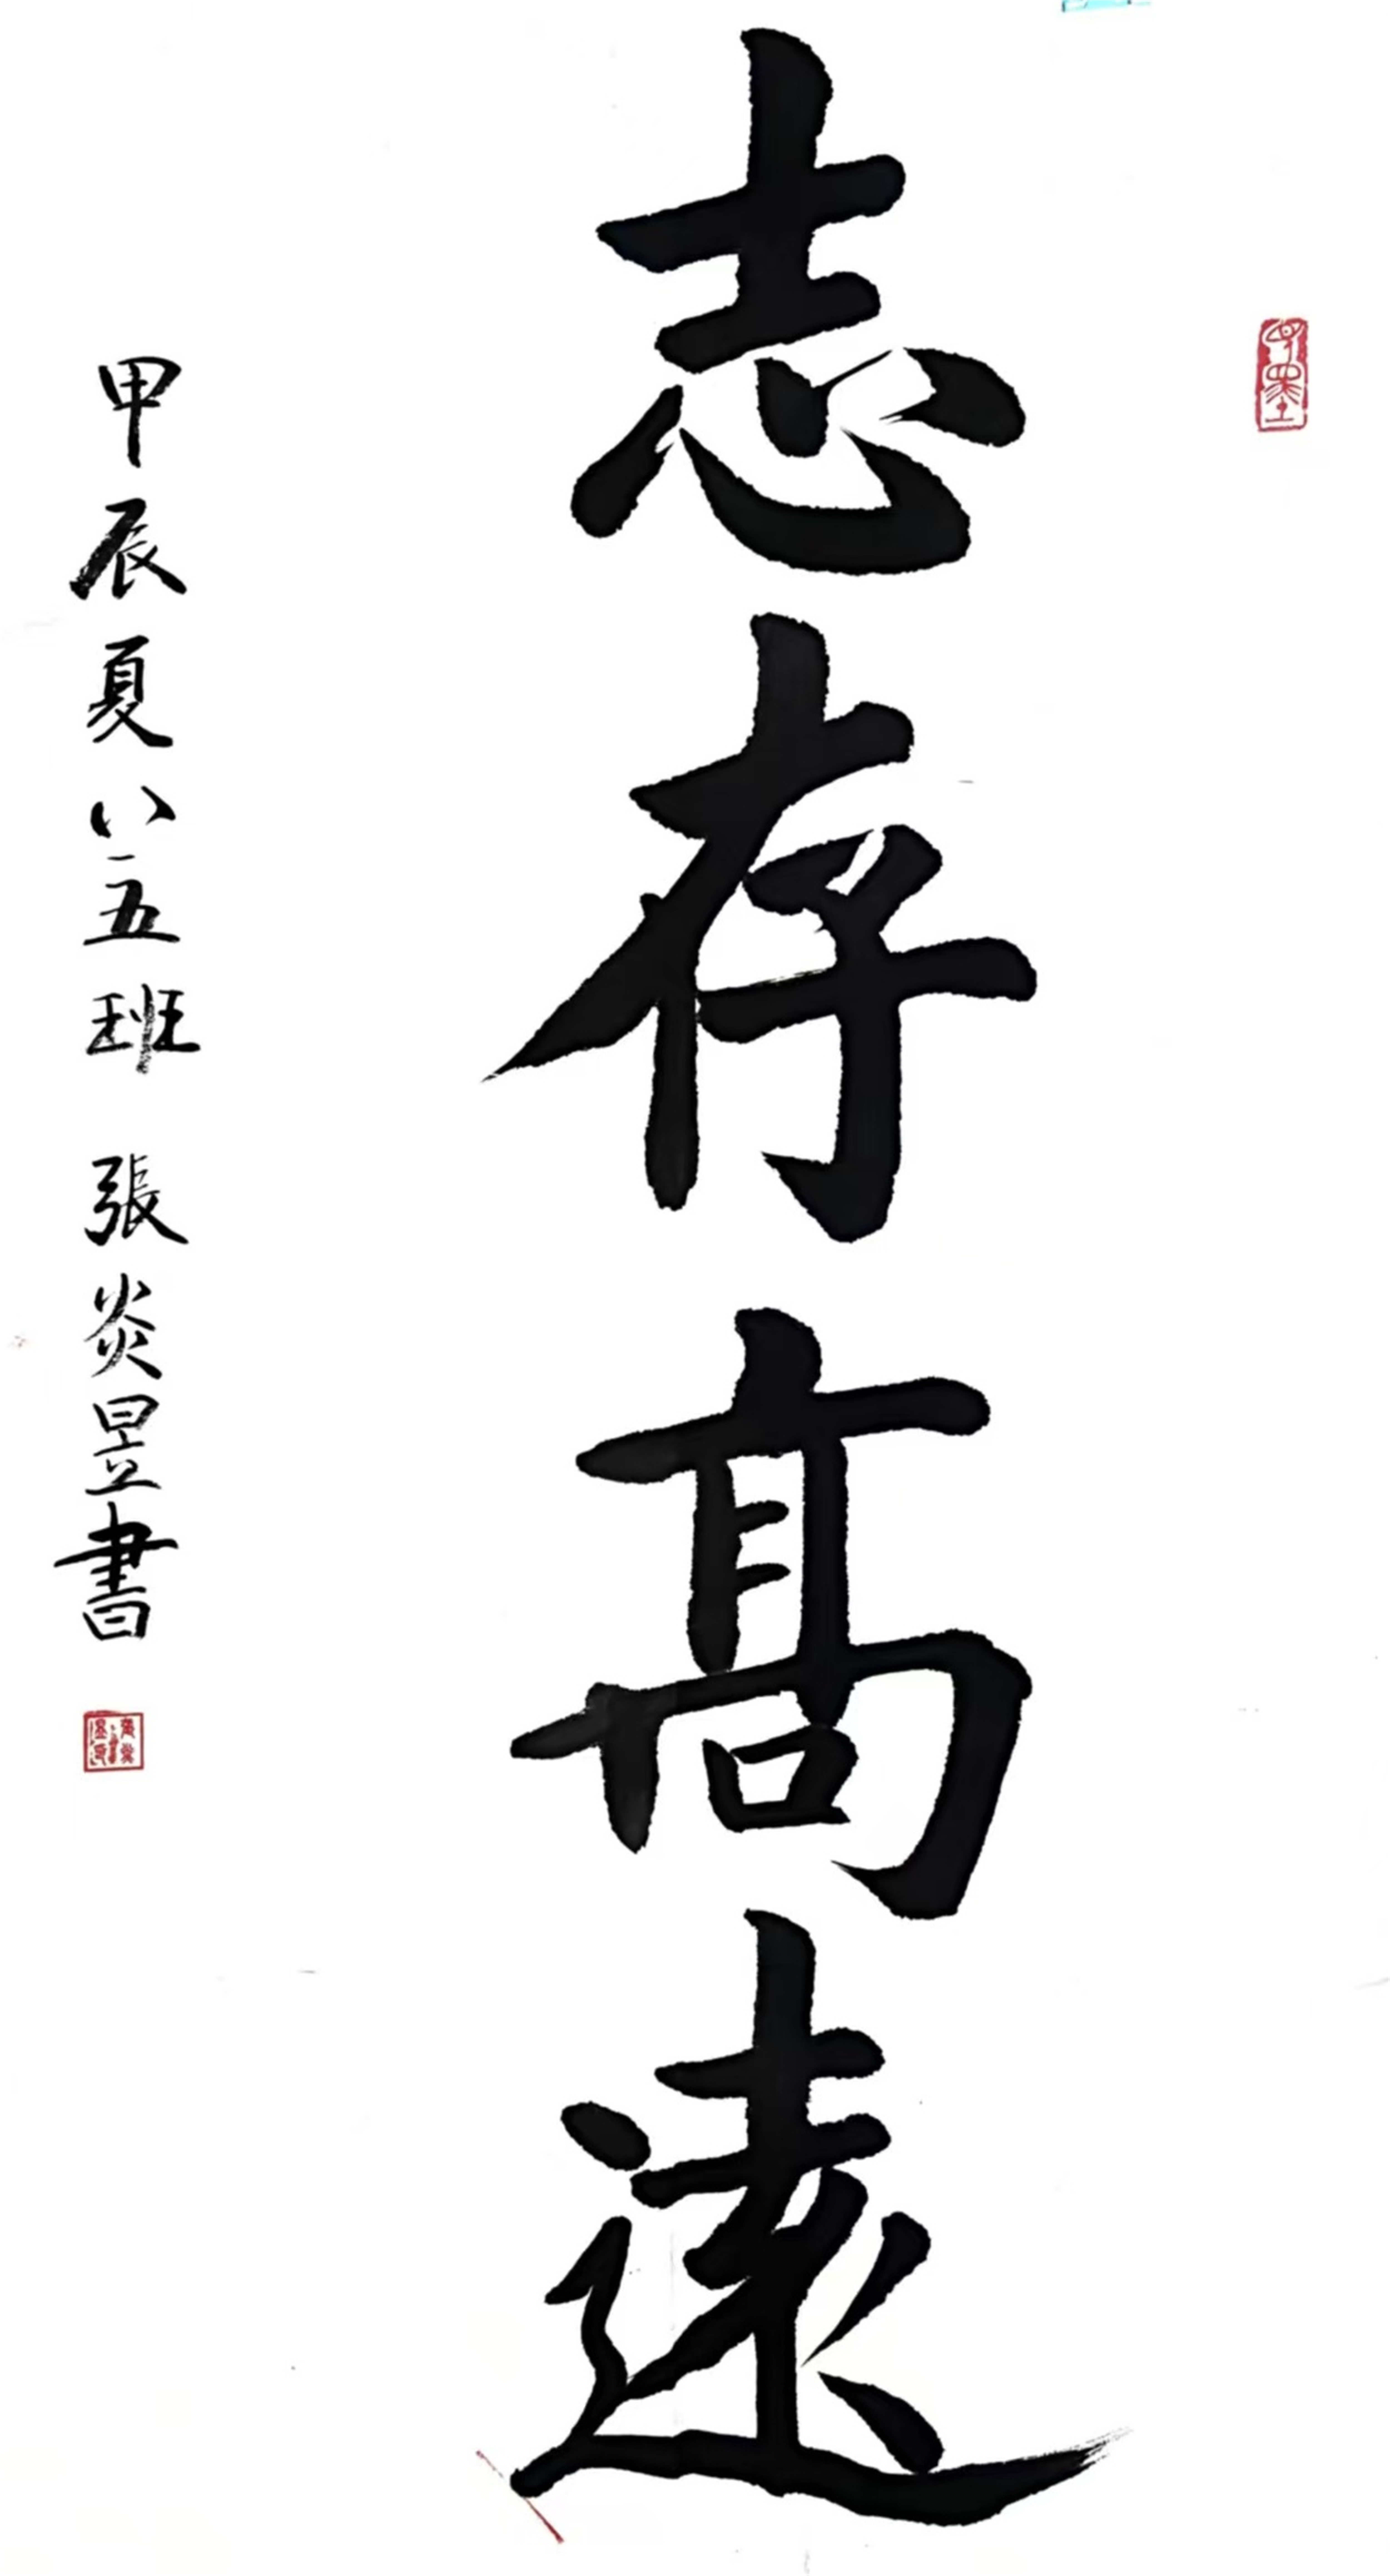 志存髙遠
甲辰夏八五班 張炎昱書